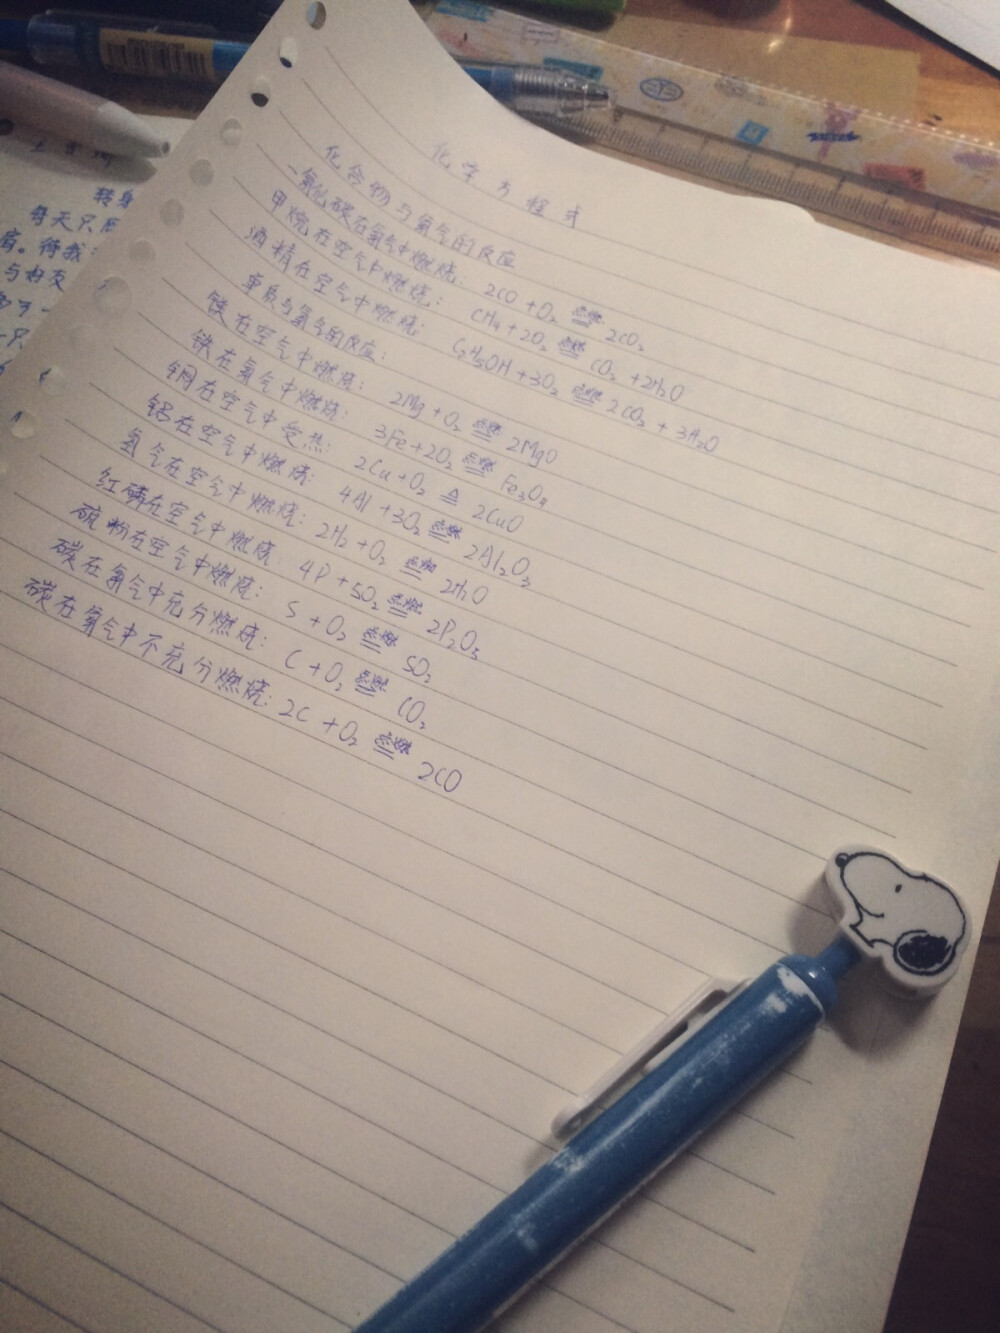 化学方程式
化合物与氧气的反应
一氧化碳在氧气中燃烧: 2CO + O₂ 点燃 2CO₂
甲烷在空气中燃烧: CH₄ + 2O₂ 点燃 CO₂ + 2H₂O
酒精在空气中燃烧: C₂H₅OH + 3O₂ 点燃 2CO₂ + 3H₂O
单质与氧气的反应:
镁在空气中燃烧: 2Mg + O₂ 点燃 2MgO
铁在氧气中燃烧: 3Fe + 2O₂ 点燃 Fe₃O₄
铜在空气中受热: 2Cu + O₂ △ 2CuO
铝在空气中燃烧: 4Al + 3O₂ 点燃 2Al₂O₃
氢气在空气中燃烧: 2H₂ + O₂ 点燃 2H₂O
红磷在空气中燃烧: 4P + 5O₂ 点燃 2P₂O₅
硫粉在空气中燃烧: S + O₂ 点燃 SO₂
碳在氧气中充分燃烧: C + O₂ 点燃 CO₂
碳在氧气中不充分燃烧: 2C + O₂ 点燃 2CO
转身
每天只
待我
与好友